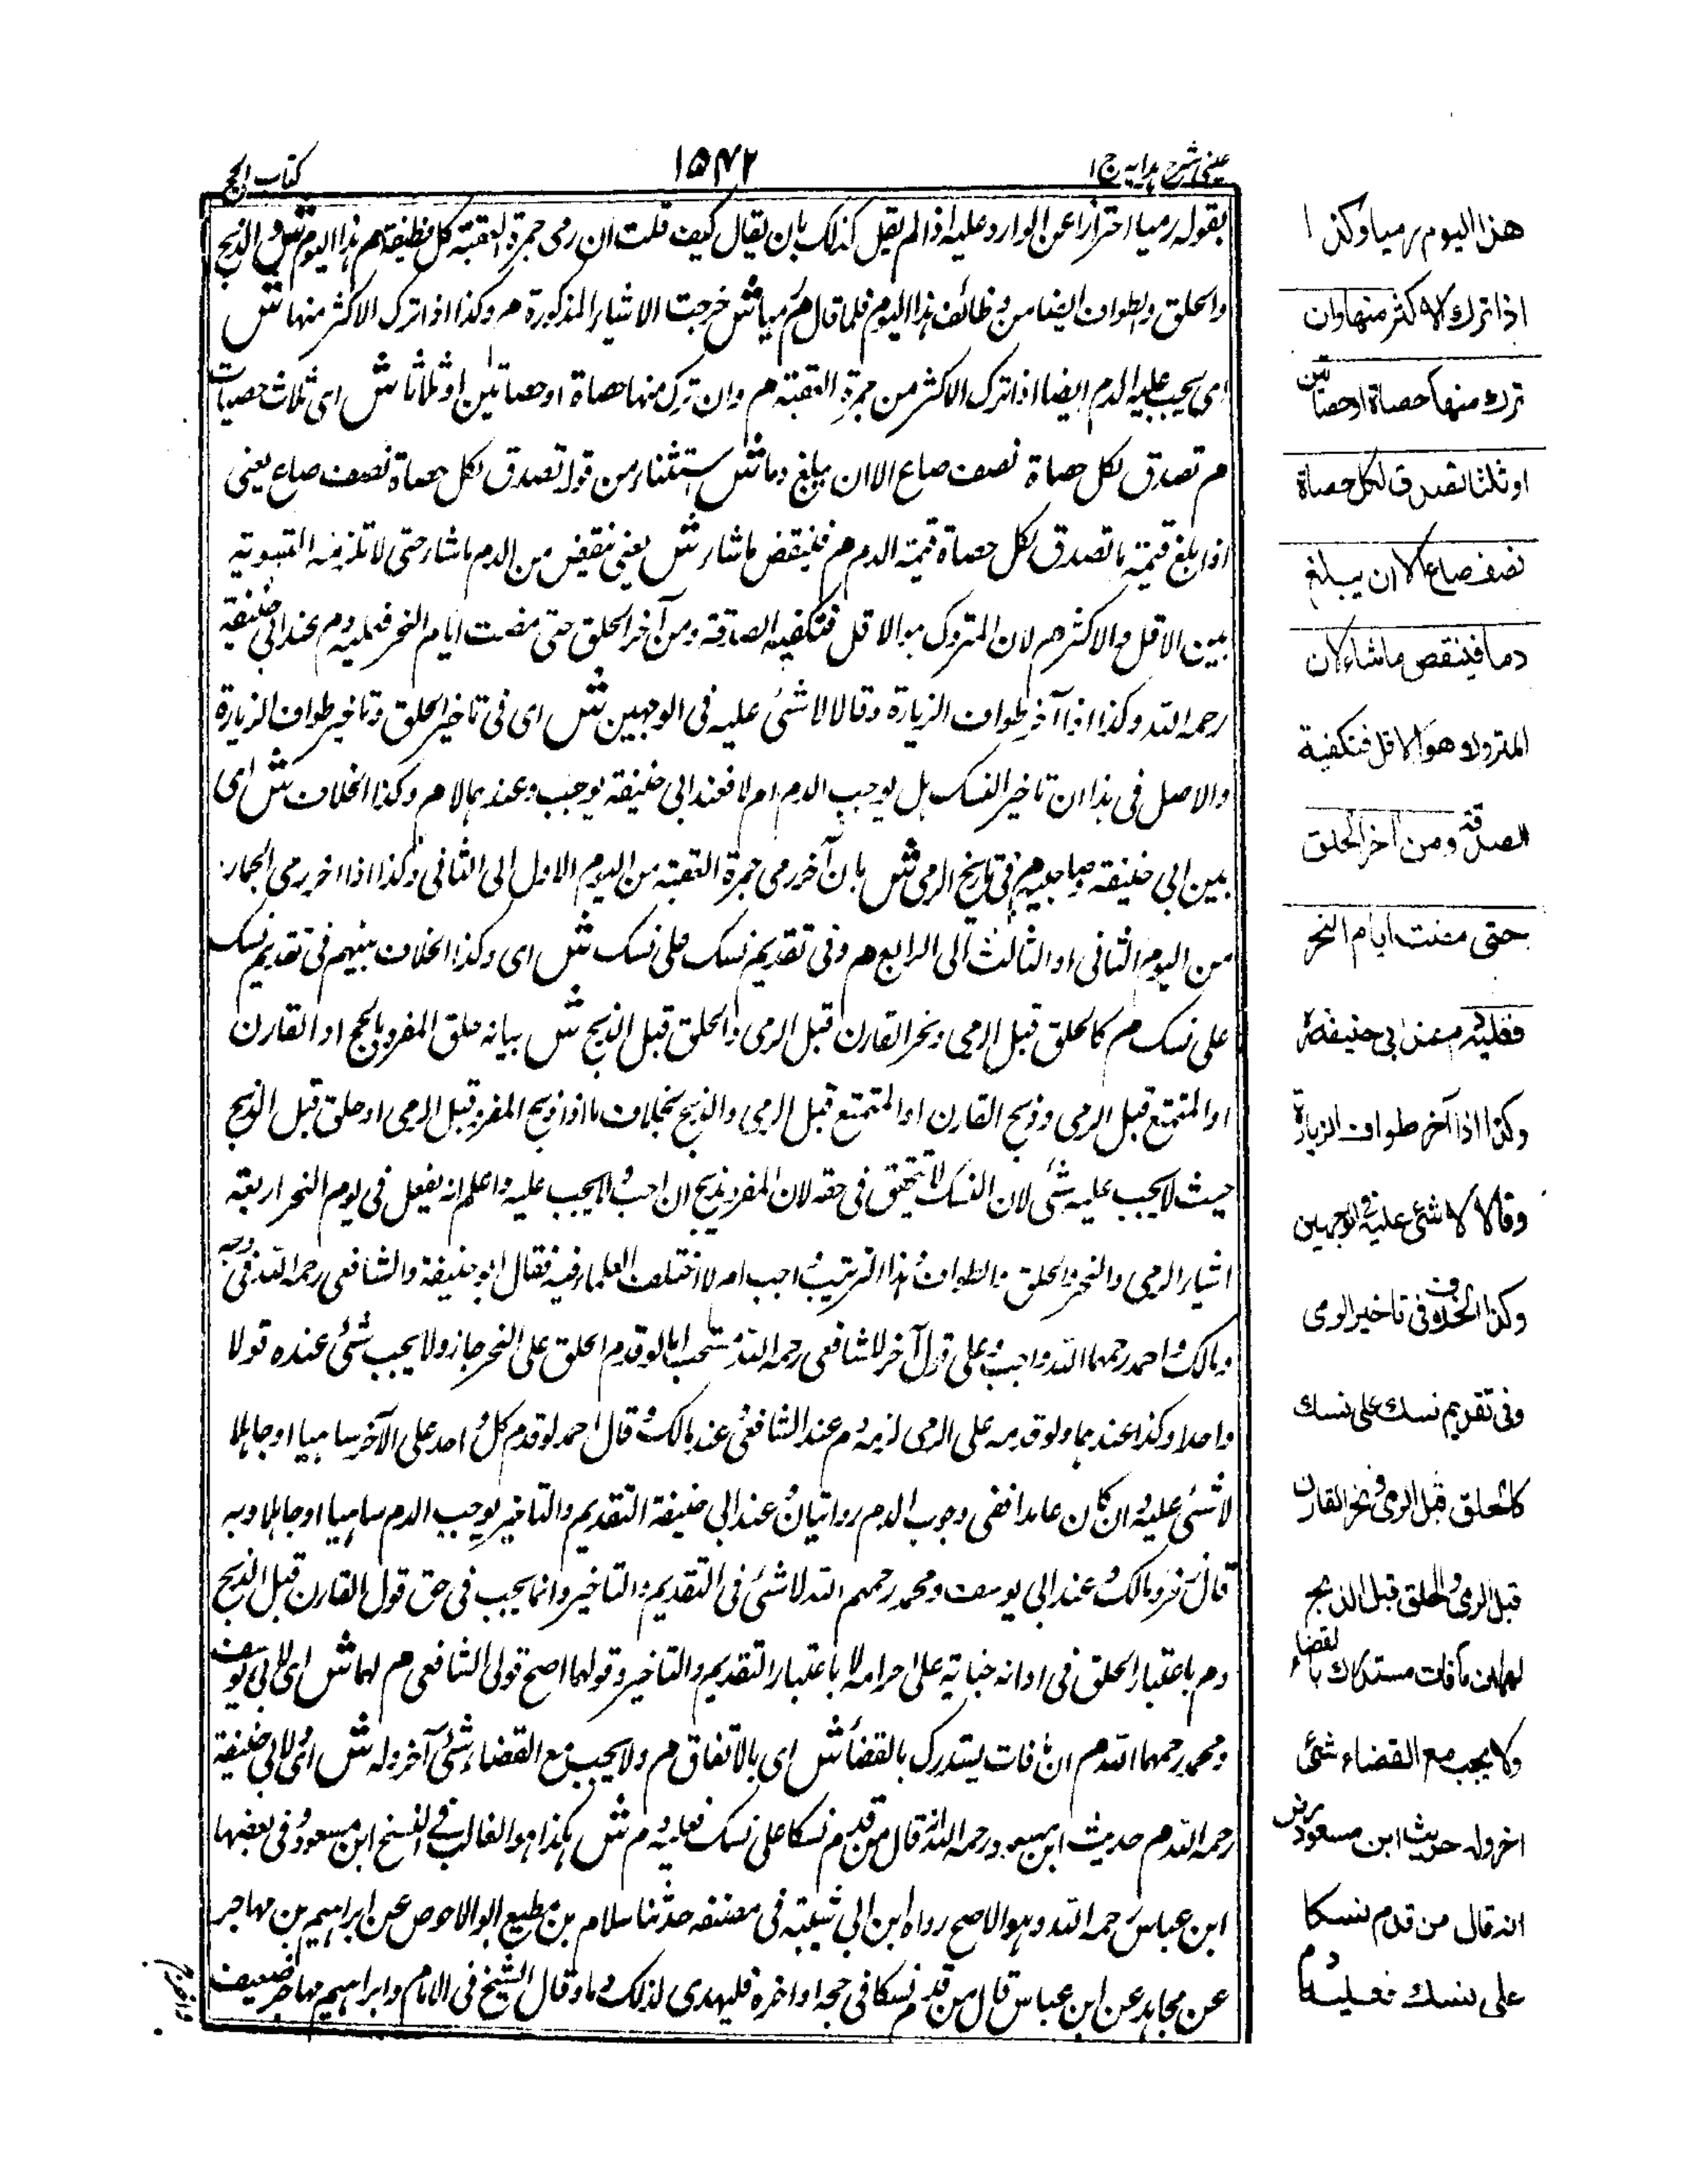 عینی شرح ہدایہ ج ا
١٥٤٢
کتاب الحج
بقوله رميا احترازا عن الوارد عليه اذا لم يقل كذلك بان يقال كيف قلت ان رمى جمرة العقبة كل وظيفة هم هذا اليوم ش والذبح
والحلق والطواف ايضا من وظائف هذا اليوم فلما قال هم رميا ش خرجت الاشياء المذكورة هم وكذا اذا ترك الاكثر منها ش
اى يجب عليه الدم ايضا اذا ترك الاكثر من جمرة العقبة هم وان ترك منها حصاة او حصاتين او ثلاثا ش اى ثلاث حصيات
هم تصدق لكل حصاة نصف صاع الا ان يبلغ دما ش استثناء من قوله تصدق لكل حصاة نصف صاع يعنى
اذا بلغ قيمة ما تصدق لكل حصاة قيمة الدم هم فينقض ماشاء ش يعنى ينقض من الدم ماشاء حتى لا تلزمه التسوية
بين الاقل والاكثر هم لان المتروك هو الاقل فتكفيه الصدقة ومن آخر الحلق حتى مضت ايام النحر فعليه دم عند ابى حنيفة
رحمه الله وكذا اذا آخر طواف الزيارة وقالا لا شئ عليه فى الوجهين ش اى فى تاخير الحلق وتاخير طواف الزيارة
والاصل فى هذا ان تاخير النسك هل يوجب الدم ام لا فعند ابى حنيفة يوجب وعندهما لا هم وكذا الخلاف ش اى
بين ابى حنيفة وصاحبيه هم فى تاخير الرمى ش بان آخر رمى جمرة العقبة من اليوم الاول الى الثانى وكذا اذا اخر رمى الجمار
من اليوم الثانى او الثالث الى الرابع هم وفى تقديم نسك على نسك ش اى وكذا الخلاف بينهم فى تقديم نسك
على نسك هم كالحلق قبل الرمى ونحر القارن قبل الرمى والحلق قبل الذبح ش بيانه حلق المفرد بالحج او القارن
او المتمتع قبل الرمى وذبح القارن او المتمتع قبل الرمى والذبح بخلاف ما اذا ذبح المفرد قبل الرمى او حلق قبل الذبح
حيث لا يجب عليه شئ لان النسك لا تتحقق فى حقه لان المفرد يذبح ان احب ولا يجب عليه واعلم انه يفعل فى يوم النحر اربعة
اشياء الرمى والنحر والحلق والطواف وهذا الترتيب واجب ام لا اختلف العلماء فيه فقال ابو حنيفة والشافعى رحمه الله فى وجه
ومالك واحمد رحمهما الله واجب وعلى قول آخر للشافعى رحمه الله مستحب اما لو قدم الحلق على النحر جاز ولا يجب شئ عنده قولا
واحدا وكذا عندهما ولو قدمه على الرمى لزمه دم عند الشافعى وعند مالك وقال احمد لو قدم كل واحد على الآخر ساهيا او جاهلا
لا شئ عليه وان كان عامدا ففى وجوب الدم روايتان وعند ابى حنيفة التقديم والتاخير يوجب الدم ساهيا او جاهلا وبه
قال زفر ومالك وعند ابى يوسف ومحمد رحمهم الله لا شئ فى التقديم والتاخير وانما يجب فى حق قول القارن قبل الذبح
دم باعتبار الحلق فى اوانه جناية على احرامه لا باعتبار التقديم والتاخير وقولهما اصح قولى الشافعى هم لهما ش اى لابى يوسف
ومحمد رحمهما الله هم ان ما فات يستدرك بالقضاء ش اى بالاتفاق هم ولا يجب مع القضاء شئ آخر وله ش اى لابى حنيفة
رحمه الله هم حديث ابن مسعود رحمه الله انه قال من قدم نسكا على نسك فعليه دم ش هكذا هو الغالب فى النسخ ابن مسعود وفى بعضها
ابن عباس رحمه الله وهو الاصح رواه ابن ابى شيبة فى مصنفه حدثنا سلام بن مطيع ابو الاحوص عن ابراهيم بن مهاجر
عن مجاهد عن ابن عباس قال من قدم نسكا فى حجه او اخره فليهدى لذلك دما وقال الشيخ فى الامام وابراهيم مهاجر ضعيف
هذا اليوم رميا وكذا
اذا ترك الاكثر منها وان
ترك منها حصاة او حصاتين
او ثلثا تصدق لكل حصاة
نصف صاع الا ان يبلغ
دما فينقص ماشاء لان
المتروك هو الاقل فتكفية
الصدقة ومن آخر الحلق
حتى مضت ايام النحر
فعليه دم عند ابى حنيفة
وكذا اذا آخر طواف الزيارة
وقالا لا شئ عليه فى الوجهين
وكذا الخلاف فى تاخير الرمى
وفى تقديم نسك على نسك
كالحلق قبل الرمى ونحر القارن
قبل الرمى والحلق قبل الذبح
لهما ان ما فات مستدرك بالقضاء
ولا يجب مع القضاء شئ
اخر وله حديث ابن مسعود رض
انه قال من قدم نسكا
على نسك فعليه دم